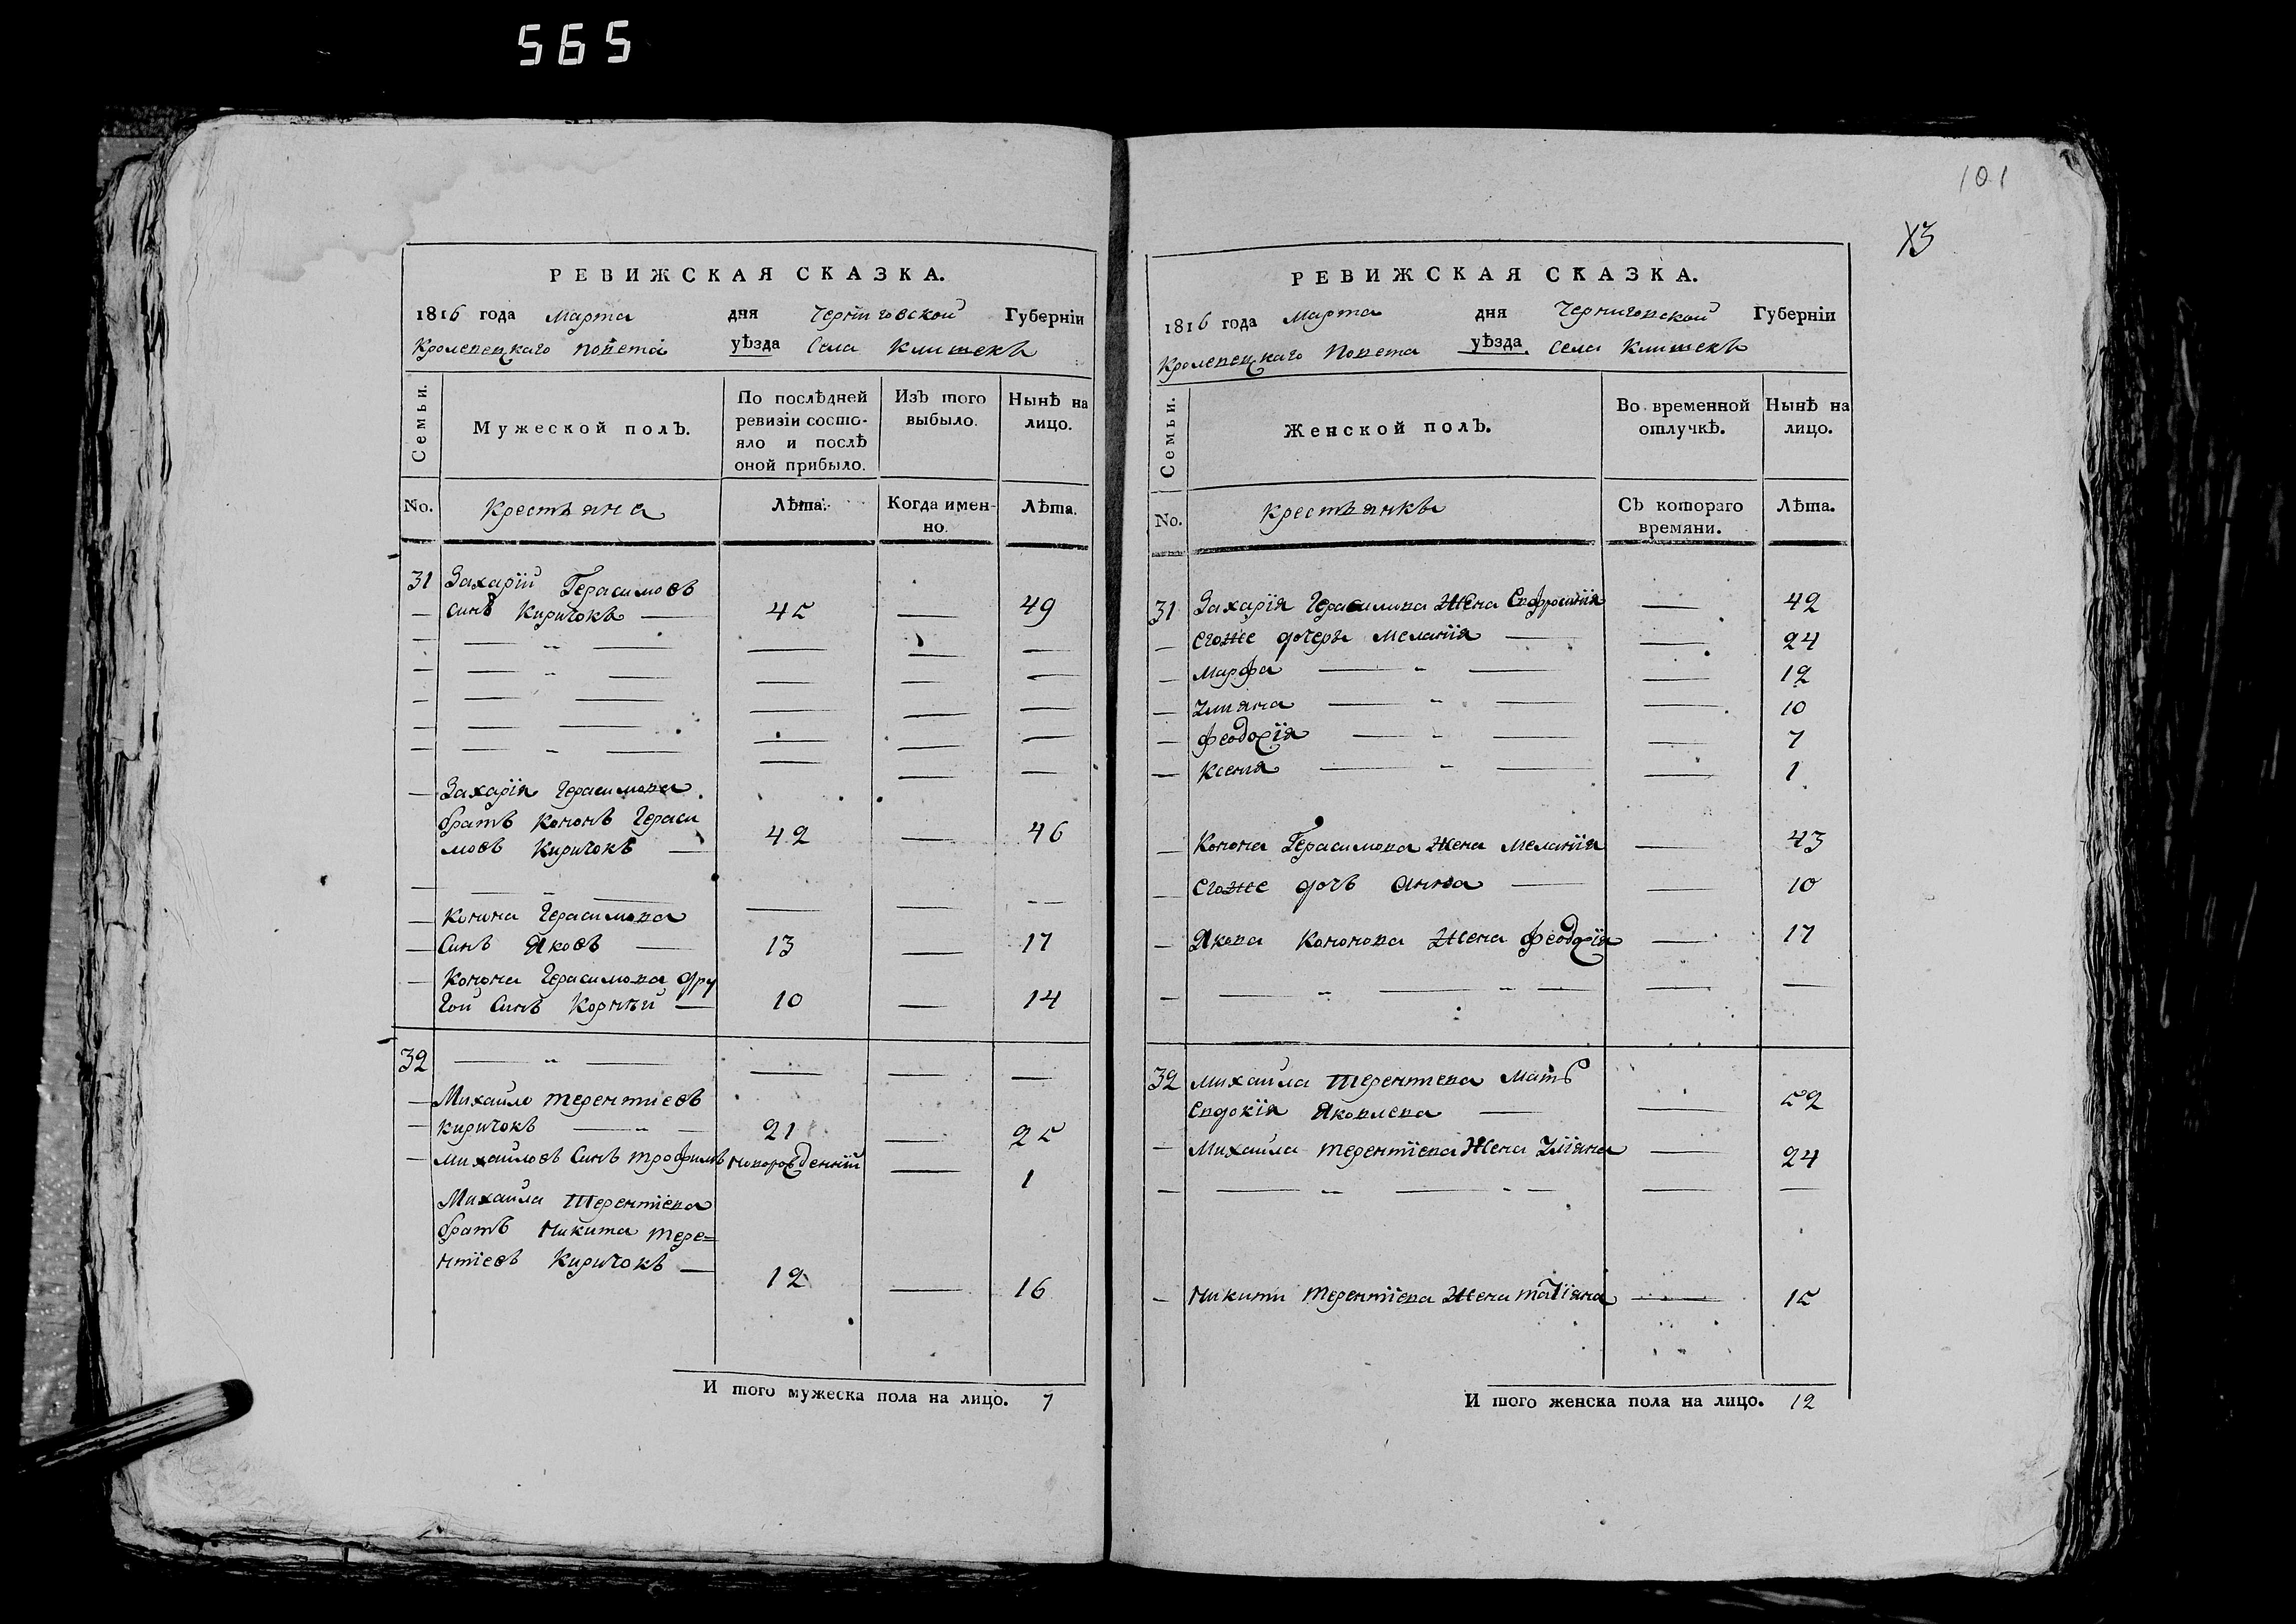 565
101
ХЗ
РЕВИЖСКАЯ СКАЗКА.
1816 года Марта дня Черниговской Губерніи
Кролевецкаго повета уѣзда Села Клишекъ
Семьи.
Мужеской полъ.
По послѣдней ревизіи состо-
яло и послѣ оной прибыло.
Изъ того выбыло.
Нынѣ на лицо.
No. Крестьяна Лѣта. Когда имен-
но. Лѣта.
31 Захарій Герасимовъ
— синъ Киричокъ — 45 — 49
— Захарія Герасимова
братъ Кононъ Гераси
мовъ Киричокъ — 42 — 46
— Конона Герасимова
— Синъ Яковъ — 13 — 17
— Конона Герасимова дру
гой Синъ Корнѣй — 10 — 14
32 — „ — — — —
— Михайло Терентіевъ
— Киричокъ — „ — 21 — 25
— Михайловъ Синъ Трофимъ новорожденній — 1
Михайла Терентіева
братъ Никита Тере=
нтіевъ Киричокъ — 12 — 16
И того мужеска пола на лицо. 7
РЕВИЖСКАЯ СКАЗКА.
1816 года Марта дня Черниговской Губерніи
Кролевецкаго Повета уѣзда. Села Клишекъ
Семьи.
Женской полъ.
Во временной отлучкѣ.
Нынѣ на лицо.
No. Крестьянкы Съ котораго времяни. Лѣта.
31 Захарія Герасимова Жена Евфросинія — 42
— Егоже дочеры Меланія — — 24
— Марфа — „ — — 12
— Уліяна — „ — — 10
— Феодосія — „ — — 7
— Ксенія — „ — — 1
— Конона Герасимова Жена Меланія — 43
— Егоже дочъ Анна — — 10
— Якова Кононова Жена Феодосія — 17
— — „ — „ — — —
32 Михайла Терентіева Мать
Евдокія Яковлева — — 52
— Михайла Терентіева Жена Уліяна — 24
— — „ — „ — — —
— Никити Терентіева Жена Татіяна — 15
И того женска пола на лицо. 12